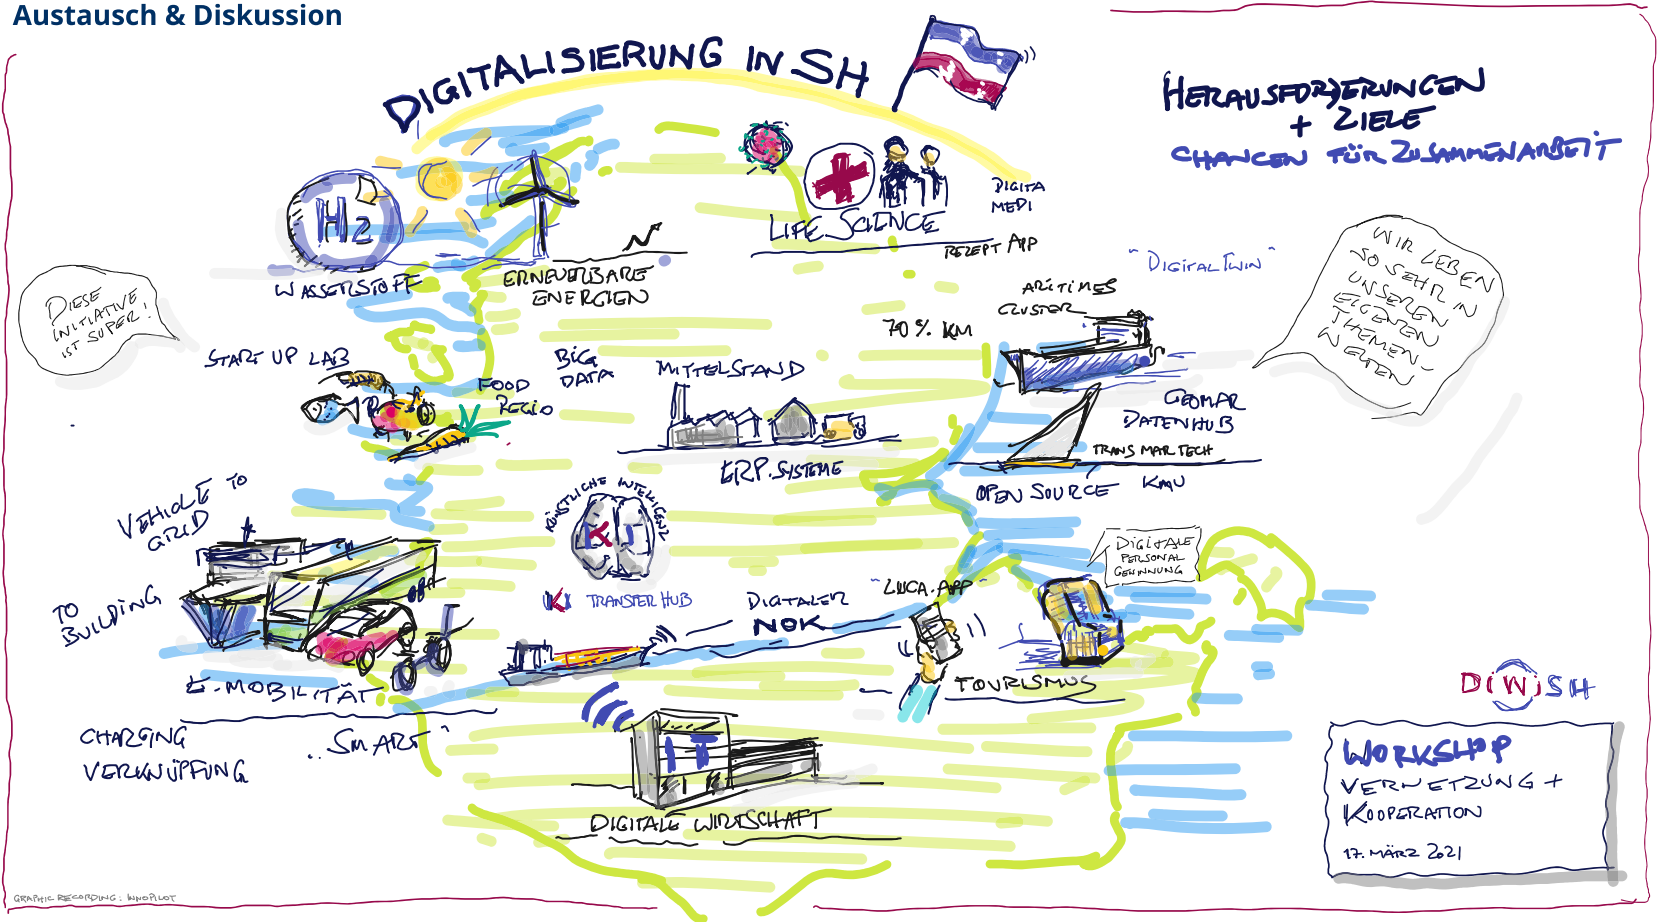 Austausch & Diskussion
DIGITALISIERUNG IN SH
HERAUSFORDERUNGEN
+ ZIELE
CHANCEN FÜR ZUSAMMENARBEIT
H2
WASSERSTOFF
ERNEUERBARE
ENERGIEN
LIFE SCIENCE
DIGITA
MEDI
REZEPT APP
"DIGITALTWIN"
WIR LEBEN
SO SEHR IN
UNSEREN
EIGENEN
THEMEN-
WELTEN
DIESE
INITIATIVE
IST SUPER!
START UP LAB
FOOD
REGIO
BIG
DATA
MITTELSTAND
ERP.SYSTEME
70% KM
ARITIMES
CLUSTER
GEOMAR
DATENHUB
TRANSMARTECH
OPEN SOURCE
KMU
VEHICLE TO
GRID
TO
BUILDING
KÜNSTLICHE INTELLIGENZ
KI
KI TRANSFER HUB
DIGITALER
NOK
"LUCA.APP"
DIGITALE
PERSONAL
GEWINNUNG
TOURISMUS
E-MOBILITÄT
CHARGING
VERKNÜPFUNG
"SMART"
DIGITALE WIRTSCHAFT
DIWISH
WORKSHOP
VERNETZUNG +
KOOPERATION
17. MÄRZ 2021
GRAPHIC RECORDING: INNOPILOT